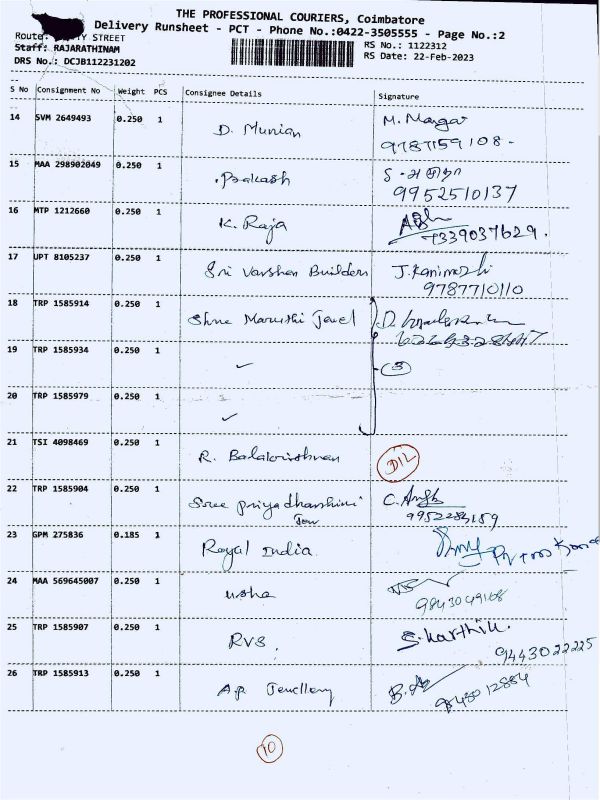 THE PROFESSIONAL COURIERS, Coimbatore
Delivery Runsheet - PCT - Phone No.:0422-3505555 - Page No.:2
Route: STREET
RS No.: 1122312
Staff: RAJARATHINAM
RS Date: 22-Feb-2023
DRS No.: DCJB112231202
S No Consignment No Weight PCS Consignee Details Signature
14 SVM 2649493 0.250 1 D. Munian M.
9787159108-
15 MAA 298902049 0.250 1 Prakash
9952510137
16 MTP 1212660 0.250 1 K. Raja
7339037629.
17 UPT 8105237 0.250 1 Sri Varshan Builders J. Kanimozhi
9787710110
18 TRP 1585914 0.250 1 Shree Maruthi Jewel D.
19 TRP 1585934 0.250 1 ✓ (3)
20 TRP 1585979 0.250 1 ✓
21 TSI 4098469 0.250 1 R. Balakrishnan D/L
22 TRP 1585904 0.250 1 Sree Priyadharshini C.
Jew
23 GPM 275836 0.185 1 Royal India
24 MAA 569645007 0.250 1 usha
9843049168
25 TRP 1585907 0.250 1 RVS. S. Karthik.
9443022225
26 TRP 1585913 0.250 1 A.P. Jewellery
9843012884
10